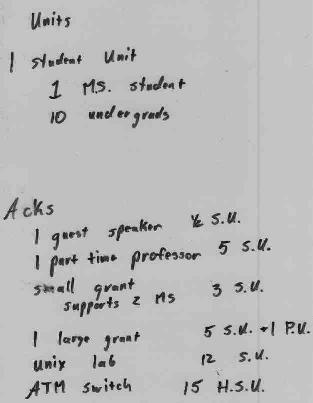 Units
1 student Unit
1 M.S. student
10 undergrads
Acks
1 guest speaker ½ S.U.
1 part time professor 5 S.U.
small grant 3 S.U.
supports 2 MS
1 large grant 5 S.U. +1 P.U.
unix lab 12 S.U.
ATM switch 15 H.S.U.